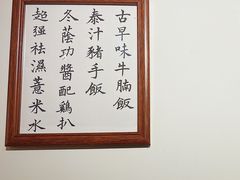 古早味牛腩飯
泰汁豬手飯
冬蔭功醬配鷄扒
超強祛濕薏米水